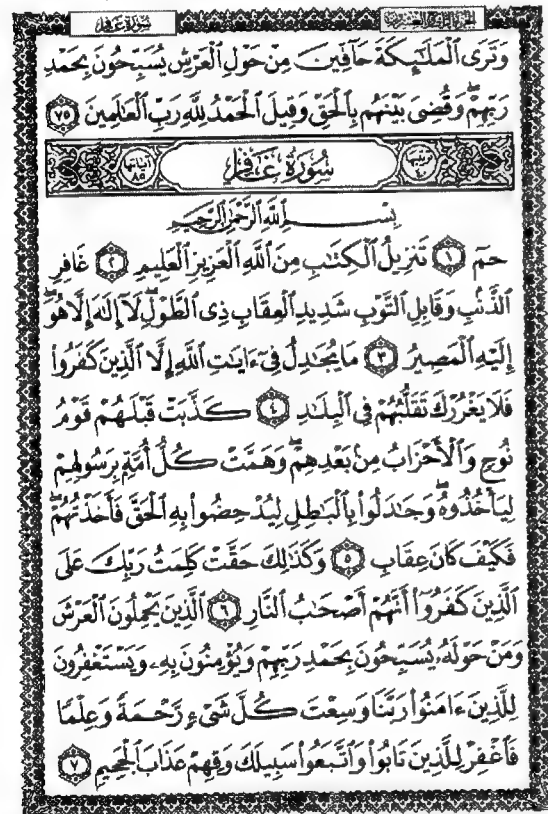 سُورَةُ غَافِر الجزء الرابع والعشرون
وَتَرَى ٱلْمَلَٰٓئِكَةَ حَآفِّينَ مِنْ حَوْلِ ٱلْعَرْشِ يُسَبِّحُونَ بِحَمْدِ
رَبِّهِمْ ۖ وَقُضِىَ بَيْنَهُم بِٱلْحَقِّ وَقِيلَ ٱلْحَمْدُ لِلَّهِ رَبِّ ٱلْعَٰلَمِينَ ٧٥
ترتيبها ٤٠ سُورَةُ غَافِر آياتها ٨٥
بِسْمِ ٱللَّهِ ٱلرَّحْمَٰنِ ٱلرَّحِيمِ
حمٓ ١ تَنزِيلُ ٱلْكِتَٰبِ مِنَ ٱللَّهِ ٱلْعَزِيزِ ٱلْعَلِيمِ ٢ غَافِرِ
ٱلذَّنۢبِ وَقَابِلِ ٱلتَّوْبِ شَدِيدِ ٱلْعِقَابِ ذِى ٱلطَّوْلِ ۖ لَآ إِلَٰهَ إِلَّا هُوَ ۖ
إِلَيْهِ ٱلْمَصِيرُ ٣ مَا يُجَٰدِلُ فِىٓ ءَايَٰتِ ٱللَّهِ إِلَّا ٱلَّذِينَ كَفَرُوا۟
فَلَا يَغْرُرْكَ تَقَلُّبُهُمْ فِى ٱلْبِلَٰدِ ٤ كَذَّبَتْ قَبْلَهُمْ قَوْمُ
نُوحٍ وَٱلْأَحْزَابُ مِنۢ بَعْدِهِمْ ۖ وَهَمَّتْ كُلُّ أُمَّةٍۭ بِرَسُولِهِمْ
لِيَأْخُذُوهُ ۖ وَجَٰدَلُوا۟ بِٱلْبَٰطِلِ لِيُدْحِضُوا۟ بِهِ ٱلْحَقَّ فَأَخَذْتُهُمْ ۖ
فَكَيْفَ كَانَ عِقَابِ ٥ وَكَذَٰلِكَ حَقَّتْ كَلِمَتُ رَبِّكَ عَلَى
ٱلَّذِينَ كَفَرُوٓا۟ أَنَّهُمْ أَصْحَٰبُ ٱلنَّارِ ٦ ٱلَّذِينَ يَحْمِلُونَ ٱلْعَرْشَ
وَمَنْ حَوْلَهُۥ يُسَبِّحُونَ بِحَمْدِ رَبِّهِمْ وَيُؤْمِنُونَ بِهِۦ وَيَسْتَغْفِرُونَ
لِلَّذِينَ ءَامَنُوا۟ رَبَّنَا وَسِعْتَ كُلَّ شَىْءٍ رَّحْمَةً وَعِلْمًا
فَٱغْفِرْ لِلَّذِينَ تَابُوا۟ وَٱتَّبَعُوا۟ سَبِيلَكَ وَقِهِمْ عَذَابَ ٱلْجَحِيمِ ٧